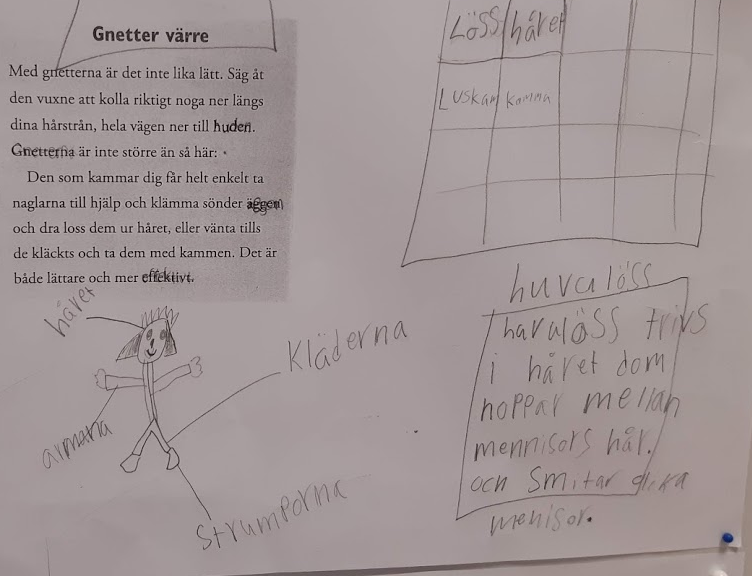 Gnetter värre
Med gnetterna är det inte lika lätt. Säg åt
den vuxne att kolla riktigt noga ner längs
dina hårstrån, hela vägen ner till huden.
Gnetterna är inte större än så här: •
Den som kammar dig får helt enkelt ta
naglarna till hjälp och klämma sönder äggen
och dra loss dem ur håret, eller vänta tills
de kläckts och ta dem med kammen. Det är
både lättare och mer effektivt.
LÖSS håret
Luskam komma
håret
Kläderna
armana
Strumporna
huvulöss
havulöss trivs
i håret dom
hoppar mellan
mennisors hår.
och Smitar
menisor.